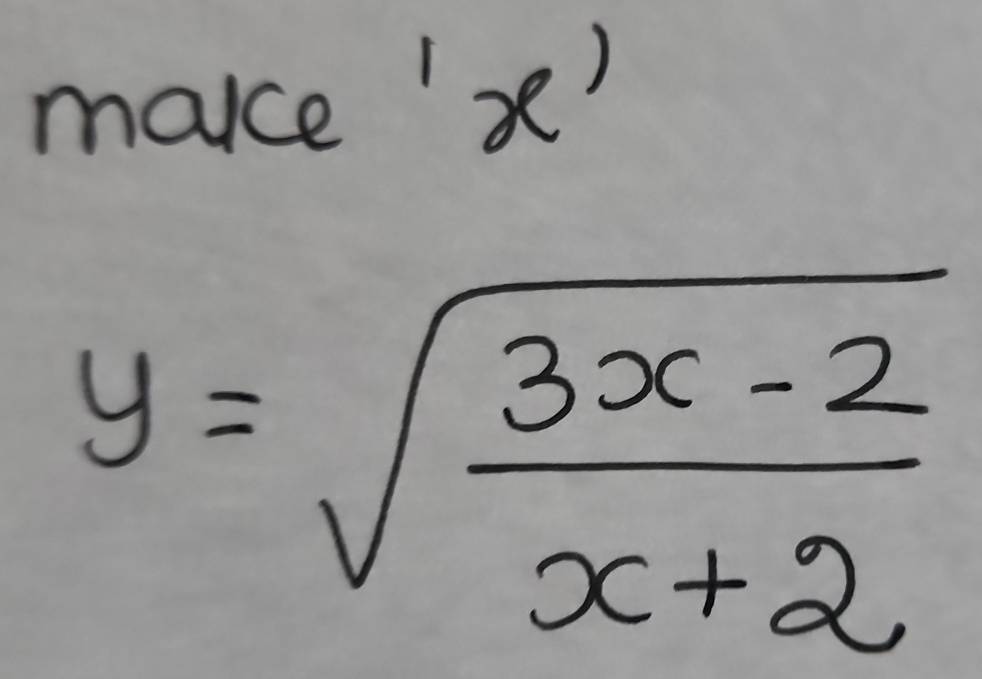 make 'x'
y = √((3x - 2)/(x + 2))